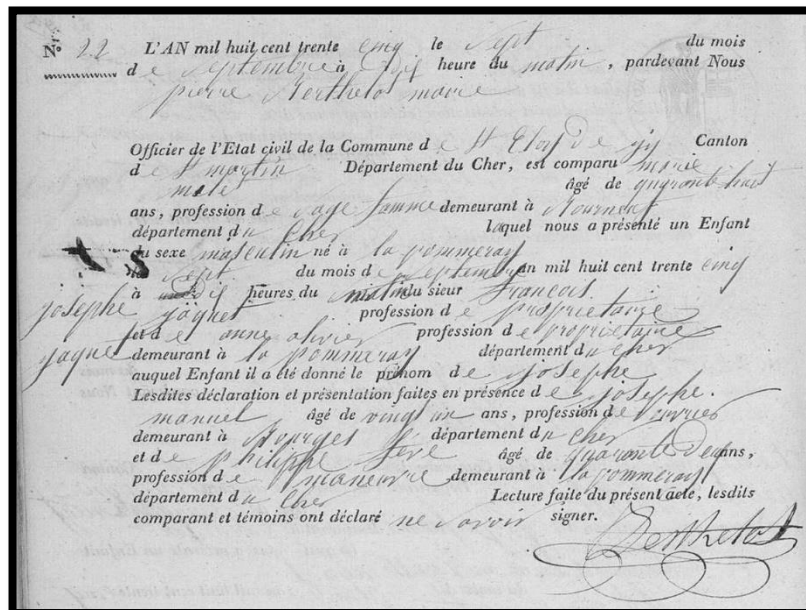 N.º 22 L'AN mil huit cent trente cinq le sept du mois
de septembre à dix heure du matin, pardevant Nous
pierre Berthelot maire
Officier de l'Etat civil de la Commune de St Eloy de gy Canton
de St martin Département du Cher, est comparu marie
âgé de quarante huit
ans, profession de sage famme demeurant à
département du Cher laquel nous a présenté un Enfant
du sexe masculin né à la pommeray
le sept du mois de septembre an mil huit cent trente cinq
à dix heures du matin du sieur François
josephe jaquet profession de propriétaire
et de anne olivier profession de propriétaire
jaquet demeurant à la pommeray département du Cher
auquel Enfant il a été donné le prénom de josephe
Lesdites déclaration et présentation faites en présence de josephe
manuel âgé de vingt un ans, profession d'ouvrier
demeurant à Bourges département du Cher
et de philippe âgé de quarante deux ans,
profession de maneuvre demeurant à la pommeray
département du Cher Lecture faite du présent acte, lesdits
comparant et témoins ont déclaré ne savoir signer.
Berthelot